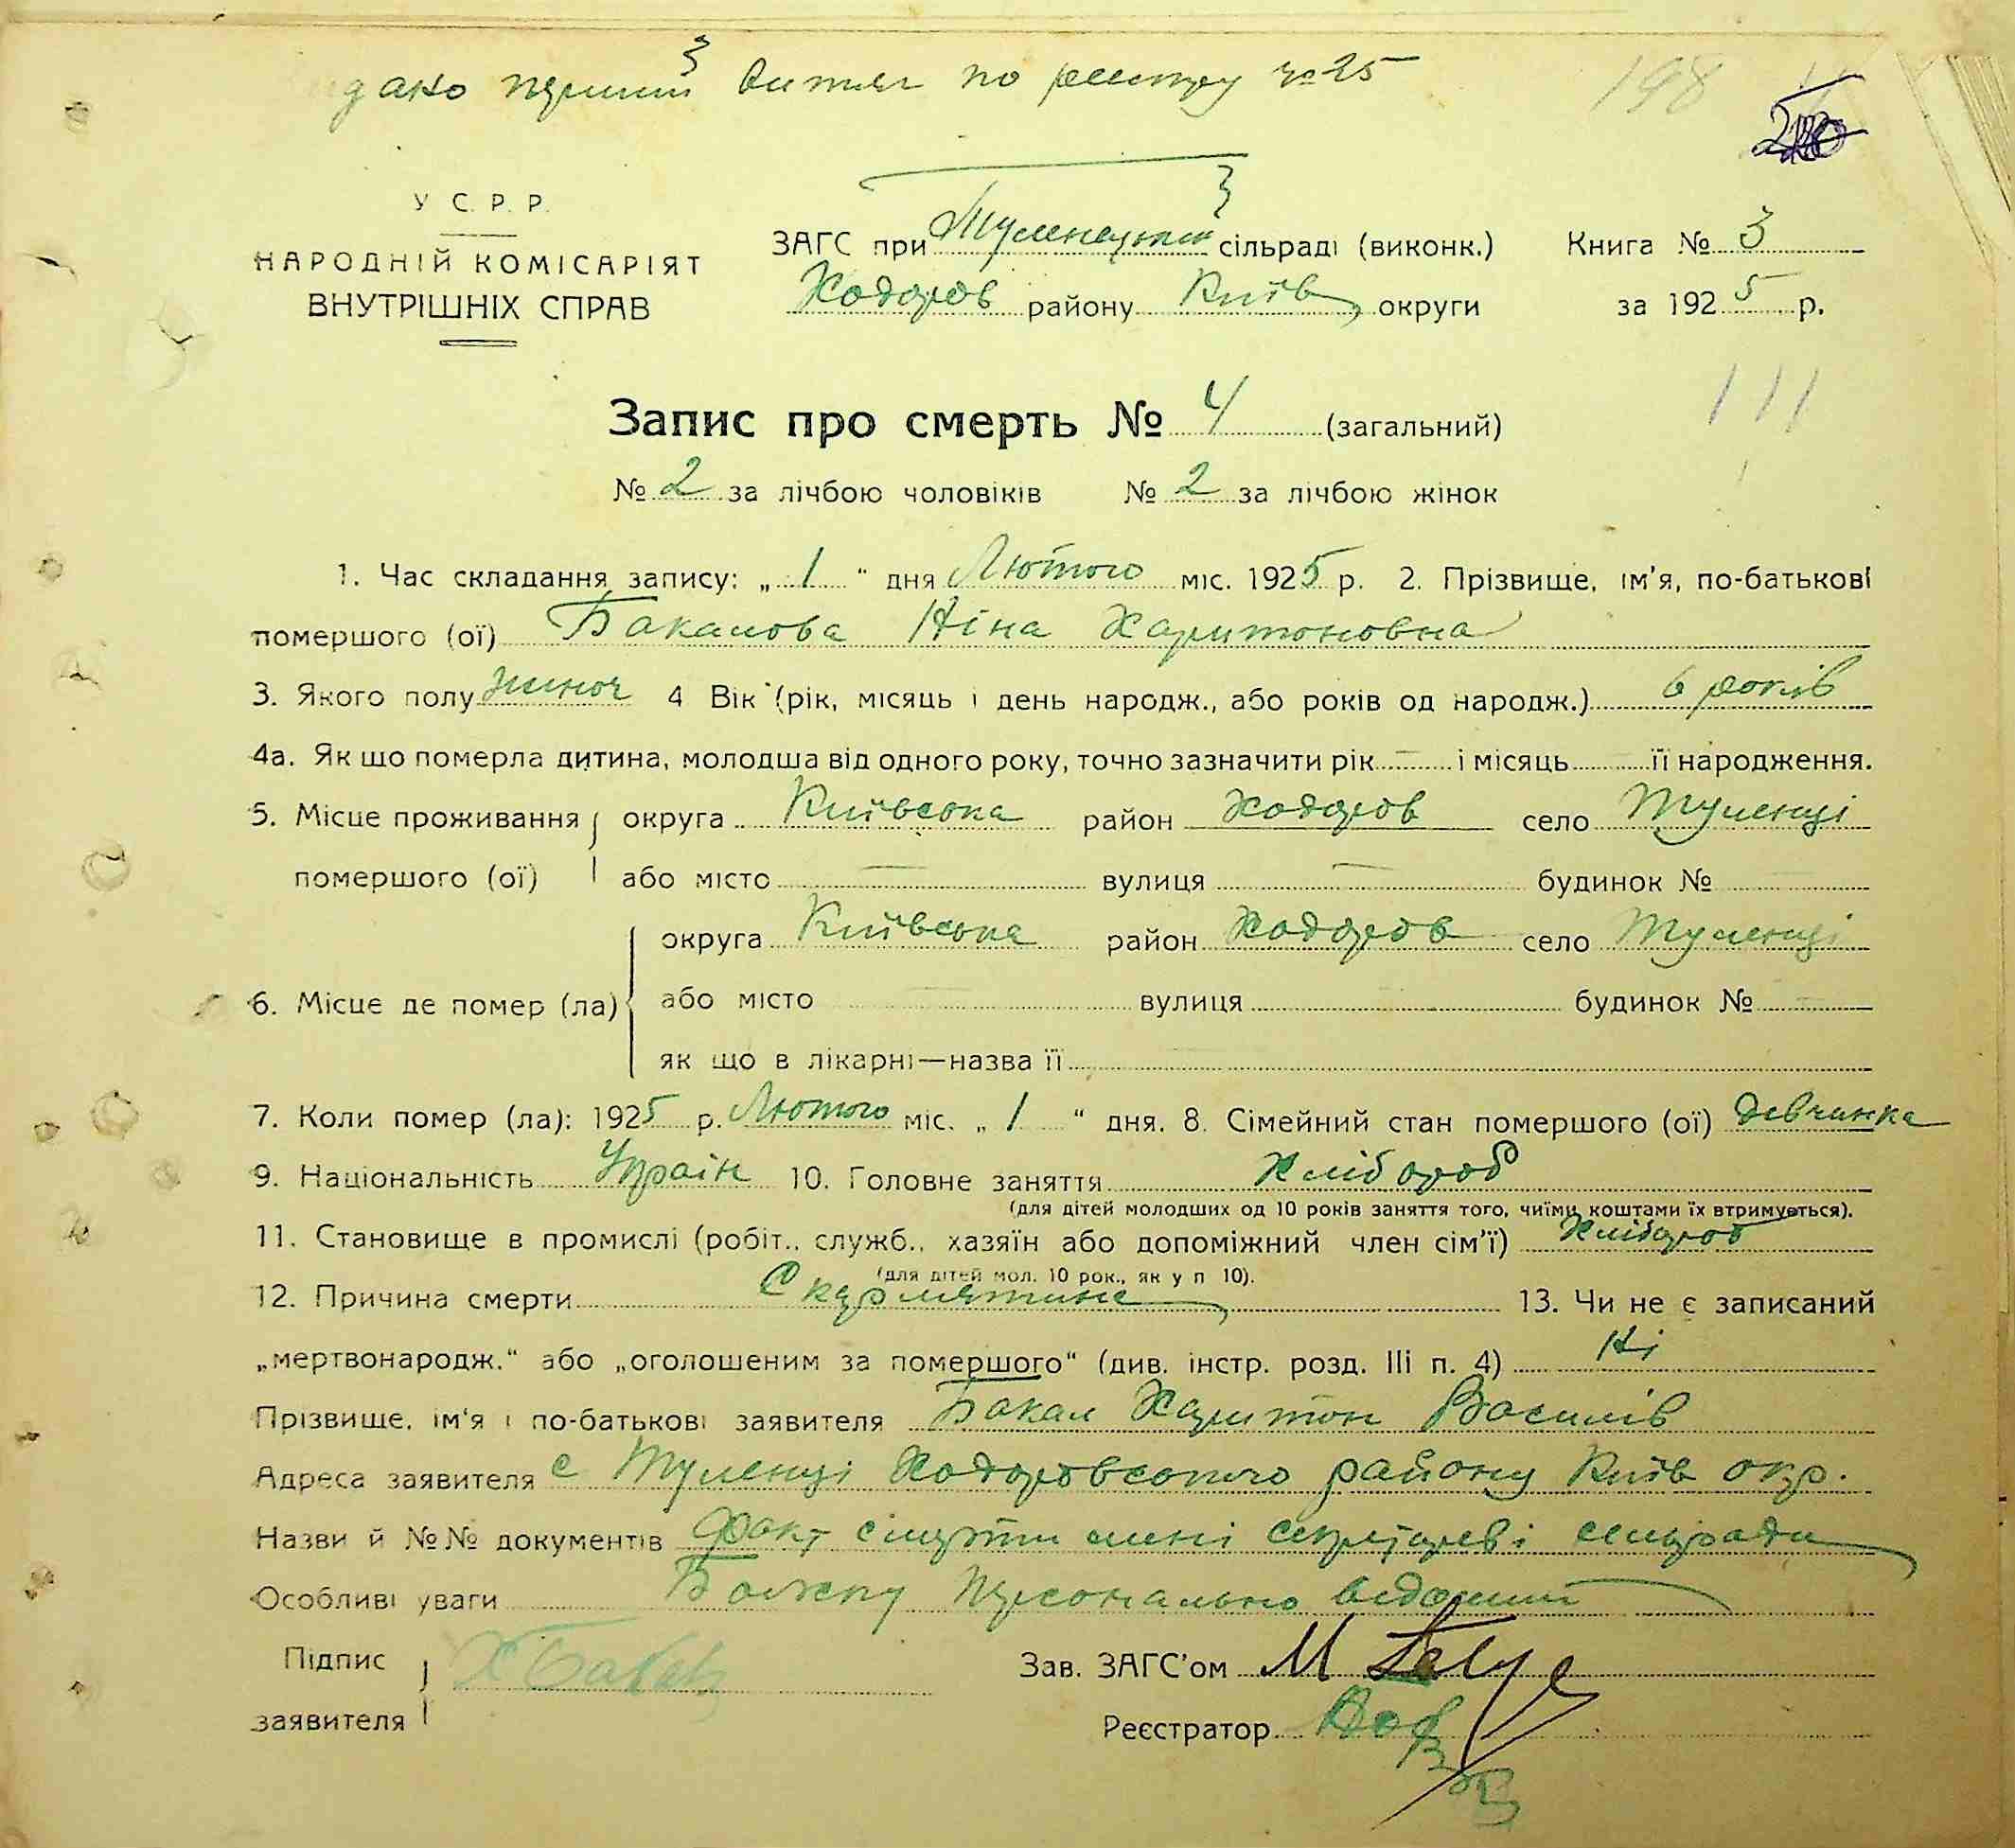 дано перший витяг по реєстру № 25
198
У. С. Р. Р.
НАРОДНІЙ КОМІСАРІЯТ
ВНУТРІШНІХ СПРАВ
ЗАГС при Туленецькій сільраді (виконк.)
Ходоров району Київ округи
Книга № 3
за 1925 р.
Запис про смерть № 4 (загальний)
№ 2 за лічбою чоловіків № 2 за лічбою жінок
1. Час складання запису: „ 1 “ дня Лютого міс. 1925 р. 2. Прізвище, ім’я, по-батькові
помершого (ої) Бакалова Ніна Харитоновна
3. Якого полу жиноч 4 Вік (рік, місяць і день народж., або років од народж.) 6 років
4а. Як що померла дитина, молодша від одного року, точно зазначити рік — і місяць — її народження.
5. Місце проживання округа Київська район Ходоров село Туленці
помершого (ої) або місто — вулиця — будинок № —
округа Київська район Ходоров село Туленці
6. Місце де помер (ла) або місто — вулиця — будинок № —
як що в лікарні—назва її
7. Коли помер (ла): 1925 р. Лютого міс. „ 1 “ дня. 8. Сімейний стан помершого (ої) девчинка
9. Національність Украін 10. Головне заняття Хлібороб
(для дітей молодших од 10 років заняття того, чиїми коштами їх втримується).
11. Становище в промислі (робіт., служб., хазяїн або допоміжний член сім’ї) Хлібороб
(для дітей мол. 10 рок., як у п 10).
12. Причина смерти Скарлятина 13. Чи не є записаний
„мертвонародж.“ або „оголошеним за помершого“ (див. інстр. розд. III п. 4) Ні
Прізвище, ім‘я і по-батькові заявителя Бакал Харитон Василів
Адреса заявителя с Туленці Ходоровського району Київ окр.
Назви й №№ документів Факт смерти мені секретареві сільради
Особливі уваги персонально відомий
Підпис Х Бакал
заявителя
Зав. ЗАГС’ом М
Реєстратор